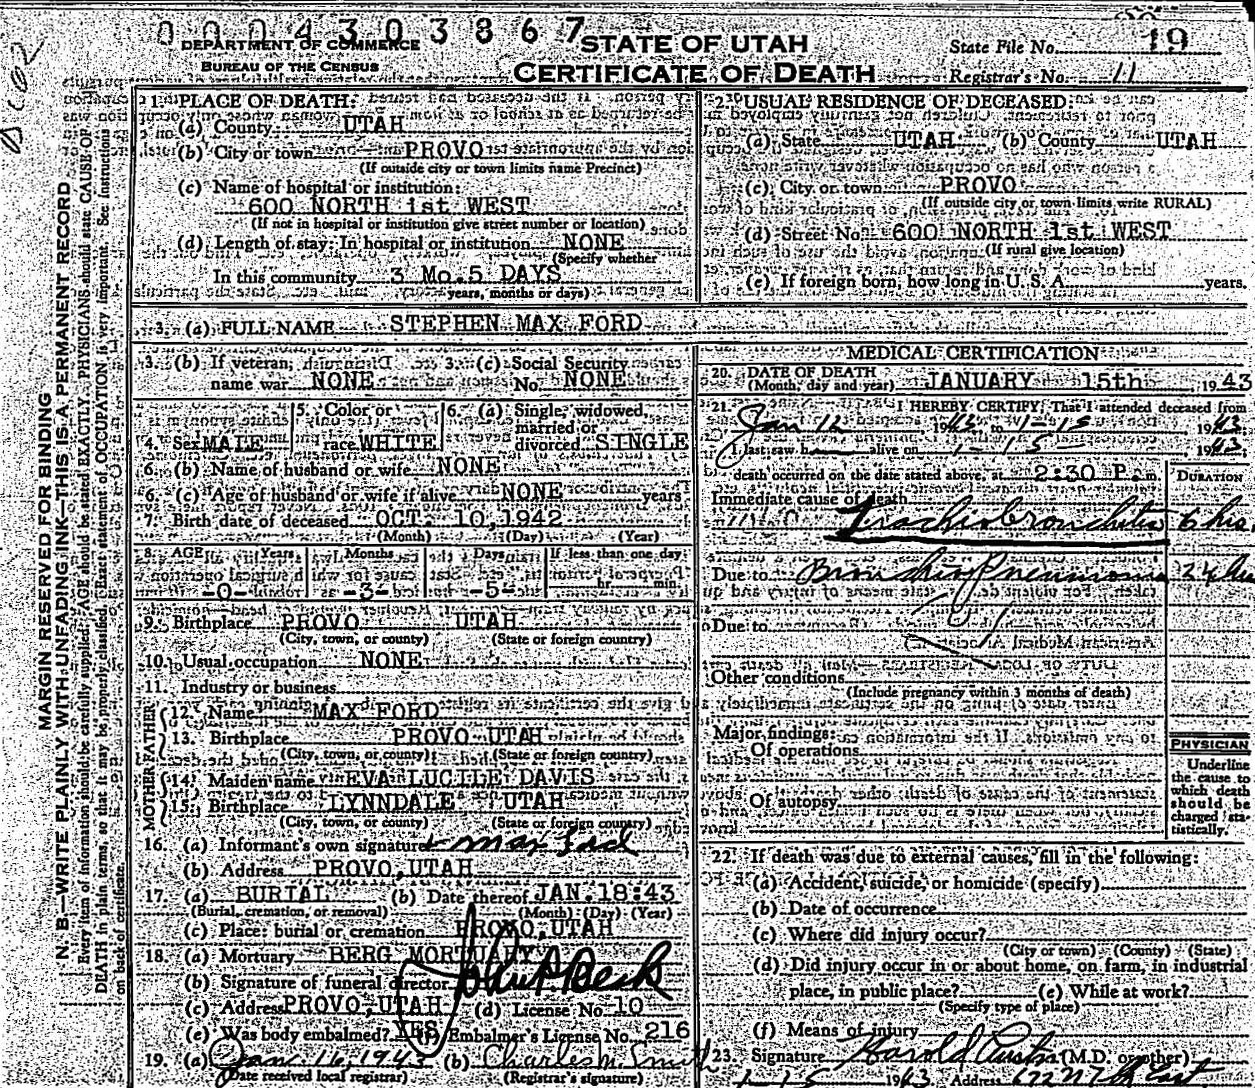 0004303867
DEPARTMENT OF COMMERCE
BUREAU OF THE CENSUS
STATE OF UTAH
CERTIFICATE OF DEATH
State File No. 19
Registrar's No. 11
MARGIN RESERVED FOR BINDING
N. B.—WRITE PLAINLY WITH UNFADING INK—THIS IS A PERMANENT RECORD
Every item of information should be carefully supplied. AGE should be stated EXACTLY. PHYSICIANS should state CAUSE OF
DEATH in plain terms, so that it may be properly classified. Exact statement of OCCUPATION is very important. See instructions
on back of certificate.
1. PLACE OF DEATH:
(a) County UTAH
(b) City or town PROVO
(If outside city or town limits name Precinct)
(c) Name of hospital or institution:
600 NORTH 1st WEST
(If not in hospital or institution give street number or location)
(d) Length of stay: In hospital or institution NONE
(Specify whether
In this community 3 Mo. 5 DAYS
years, months or days)
2. USUAL RESIDENCE OF DECEASED:
(a) State UTAH (b) County UTAH
(c) City or town PROVO
(If outside city or town limits write RURAL)
(d) Street No. 600 NORTH 1st WEST
(If rural give location)
(e) If foreign born, how long in U. S. A. years.
3. (a) FULL NAME STEPHEN MAX FORD
3. (b) If veteran, name war NONE
3. (c) Social Security No. NONE
4. Sex MALE
5. Color or race WHITE
6. (a) Single, widowed, married or divorced SINGLE
6. (b) Name of husband or wife NONE
6. (c) Age of husband or wife if alive NONE years
7. Birth date of deceased OCT. 10, 1942
(Month) (Day) (Year)
8. AGE Years Months Days If less than one day
-0- -3- -5- hr. min.
9. Birthplace PROVO UTAH
(City, town, or county) (State or foreign country)
10. Usual occupation NONE
11. Industry or business
FATHER
12. Name MAX FORD
13. Birthplace PROVO UTAH
(City, town, or county) (State or foreign country)
MOTHER
14. Maiden name EVA LUCILE DAVIS
15. Birthplace LYNNDALE UTAH
(City, town, or county) (State or foreign country)
16. (a) Informant's own signature Max Ford
(b) Address PROVO, UTAH
17. (a) BURIAL (b) Date thereof JAN. 18:43
(Burial, cremation, or removal) (Month) (Day) (Year)
(c) Place: burial or cremation PROVO, UTAH
18. (a) Mortuary BERG MORTUARY
(b) Signature of funeral director
(c) Address PROVO, UTAH (d) License No. 10
(e) Was body embalmed? YES (f) Embalmer's License No. 216
19. (a) Jan. 16, 1943 (b) Charles M. Smith
(Date received local registrar) (Registrar's signature)
MEDICAL CERTIFICATION
20. DATE OF DEATH
(Month, day and year) JANUARY 15th, 1943
21. I HEREBY CERTIFY, That I attended deceased from
Jan 12 1943 to 1-15 1943
I last saw h alive on 1-15-, 1943;
death occurred on the date stated above, at 2:30 P. m.
DURATION
Immediate cause of death
Trachiobronchitis 6 hrs
Due to Bronchio Pneumonia 24 hrs
Due to
Other conditions
(Include pregnancy within 3 months of death)
Major findings:
Of operations
Of autopsy
PHYSICIAN
Underline
the cause to
which death
should be
charged sta-
tistically.
22. If death was due to external causes, fill in the following:
(a) Accident, suicide, or homicide (specify)
(b) Date of occurrence
(c) Where did injury occur?
(City or town) (County) (State)
(d) Did injury occur in or about home, on farm, in industrial
place, in public place? (e) While at work?
(Specify type of place)
(f) Means of injury
23. Signature Harold Austin (M.D. or other)
1-15 1943 Address